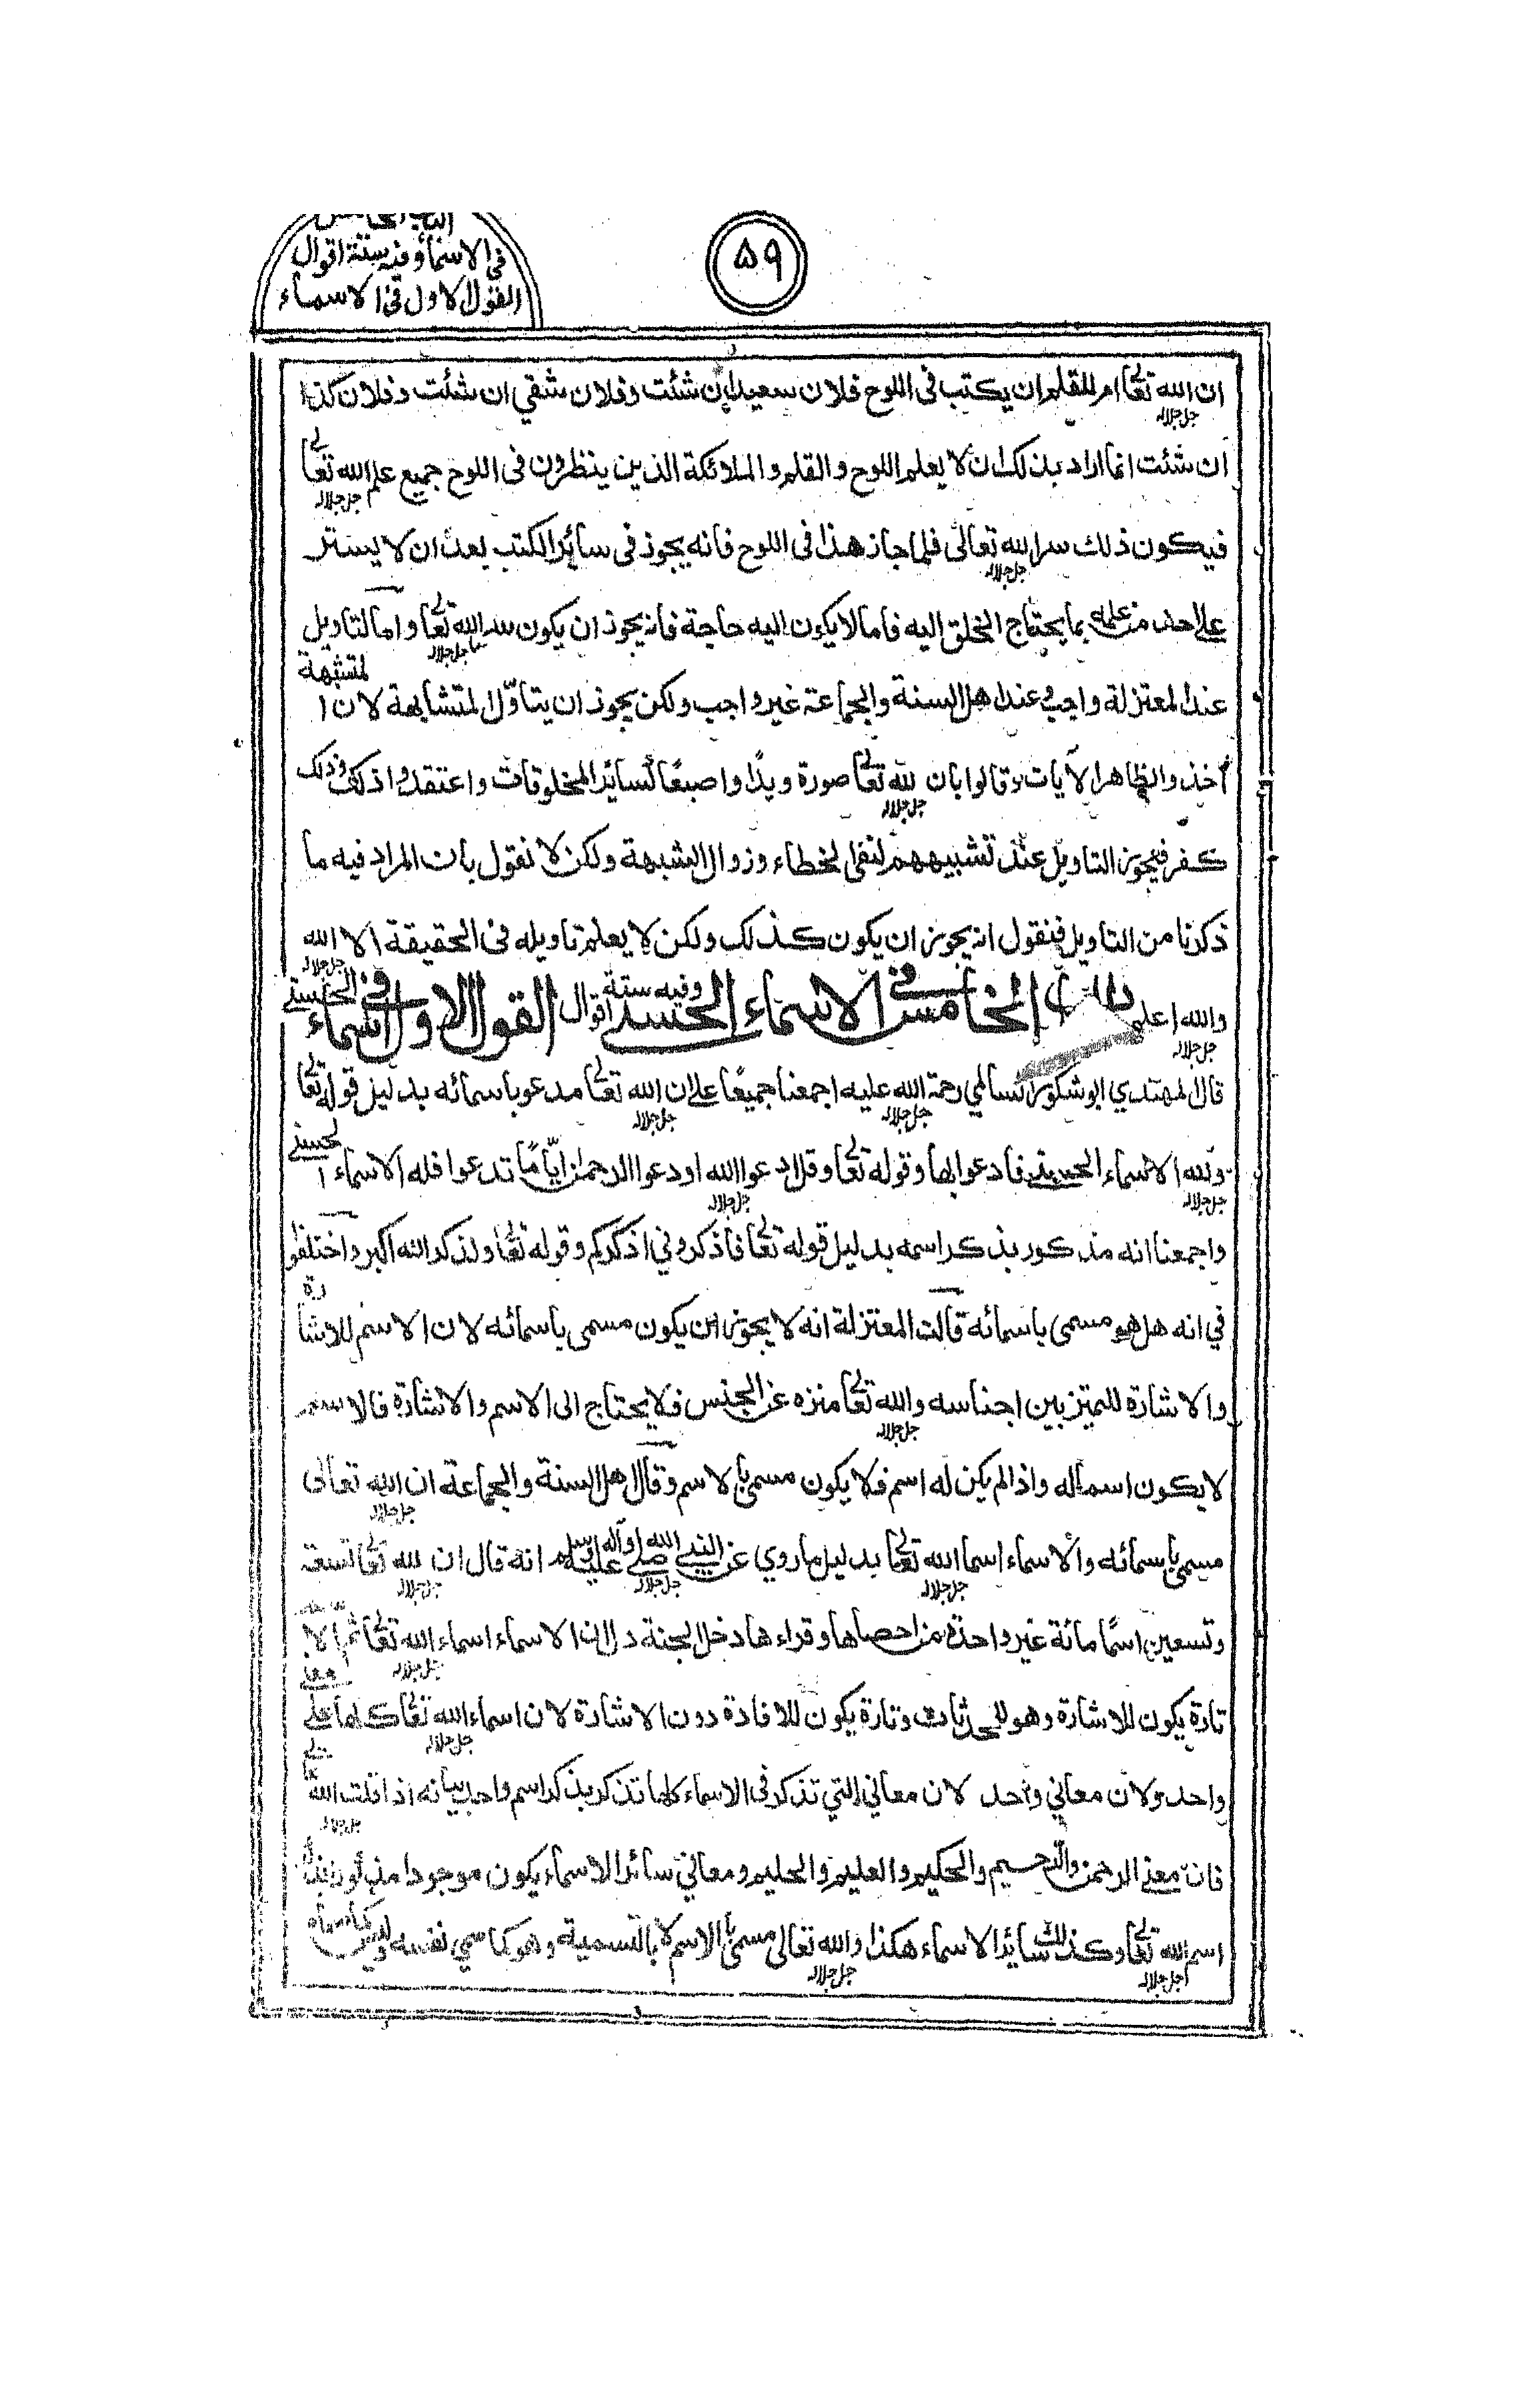 الباب الخامس
في الاسماء وفيه ستة اقوال
القول الاول في الاسماء
٥٩
ان الله تعالى امر للقلم ان يكتب فى اللوح فلان سعيد ان شئت وفلان شقي ان شئت وفلان كذا
جل جلاله
ان شئت انما اراد بذلك ان لا يعلم اللوح والقلم والملائكة الذين ينظرون فى اللوح جميع علم الله تعالى
جل جلاله
فيكون ذلك سرا لله تعالى فلما جاز هذا فى اللوح فانه يجوز فى سائر الكتب بعد ان لا يستتر
جل جلاله
على احد من علمه بما يحتاج الخلق اليه فاما لا يكون اليه حاجة فانه يجوز ان يكون سر الله تعالى واما التاويل
جل جلاله
عند المعتزلة واجب وعند اهل السنة والجماعة غير واجب ولكن يجوز ان يتاوّل المتشابهة لان المتشبهة
اخذوا الظاهر الآيات وقالوا بان لله تعالى صورة ويدًا واصبعًا كسائر المخلوقات واعتقدوا ذلك وذلك
جل جلاله
كفر فيجوز التاويل عند تشبيههم لنفى الخطاء وزوال الشبهة ولكن لا نقول بان المراد فيه ما
ذكرنا من التاويل فنقول انه يجوز ان يكون كذلك ولكن لا يعلم تاويله فى الحقيقة الا الله
جل جلاله
والله اعلم الخامس في الاسماء الحسنى وفيه ستة اقوال القول الاول في اسماء الحسنى
جل جلاله
قال المهتدي ابو شكور السالمي رحمة الله عليه اجمعنا جميعًا على ان الله تعالى مدعو باسمائه بدليل قوله تعالى
جل جلاله جل جلاله
ولله الاسماء الحسنى فادعوه بها وقوله تعالى وقل ادعوا الله او دعوا الرحمن ايّامّا تدعوا فله الاسماء الحسنى
جل جلاله جل جلاله
واجمعنا انه مذكور بذكر اسمه بدليل قوله تعالى فاذكروني اذكركم وقوله تعالى ولذكر الله اكبر واختلفوا
في انه هل هو مسمى باسمائه قالت المعتزلة انه لا يجوز ان يكون مسمى باسمائه لان الاسم للاشارة
والاشارة للتميز بين اجناسه والله تعالى منزه عن الجنس فلا يحتاج الى الاسم والاشارة فالاسم
جل جلاله
لا يكون اسماله واذا لم يكن له اسم فلا يكون مسمى بالاسم وقال اهل السنة والجماعة ان الله تعالى
جل جلاله
مسمى باسمائه والاسماء اسما الله تعالى بدليل ما روي عن النبي صلى الله عليه وآله وسلم انه قال ان لله تعالى تسعة
جل جلاله جل جلاله جل جلاله
وتسعين اسمًا مائة غير واحدة من احصاها وقراءها دخل الجنة دل ان الاسماء اسماء الله تعالى ثم
جل جلاله
تارة يكون للاشارة وهو للمحدثات وتارة يكون للافادة دون الاشارة لان اسماء الله تعالى كلها على
جل جلاله
واحد ولان معاني واحد لان معاني التي تذكر فى الاسماء كلها تذكر بذكر اسم واحد بيانه اذا قلت الله
جل جلاله
فان معنى الرحمن والرحيم والحكيم والعليم والحليم ومعاني سائر الاسماء يكون موجودا
اسم الله تعالى وكذلك سائر الاسماء هكذا والله تعالى مسمى بالاسم لا بالتسمية وهو كما سمي نفسه
جل جلاله جل جلاله